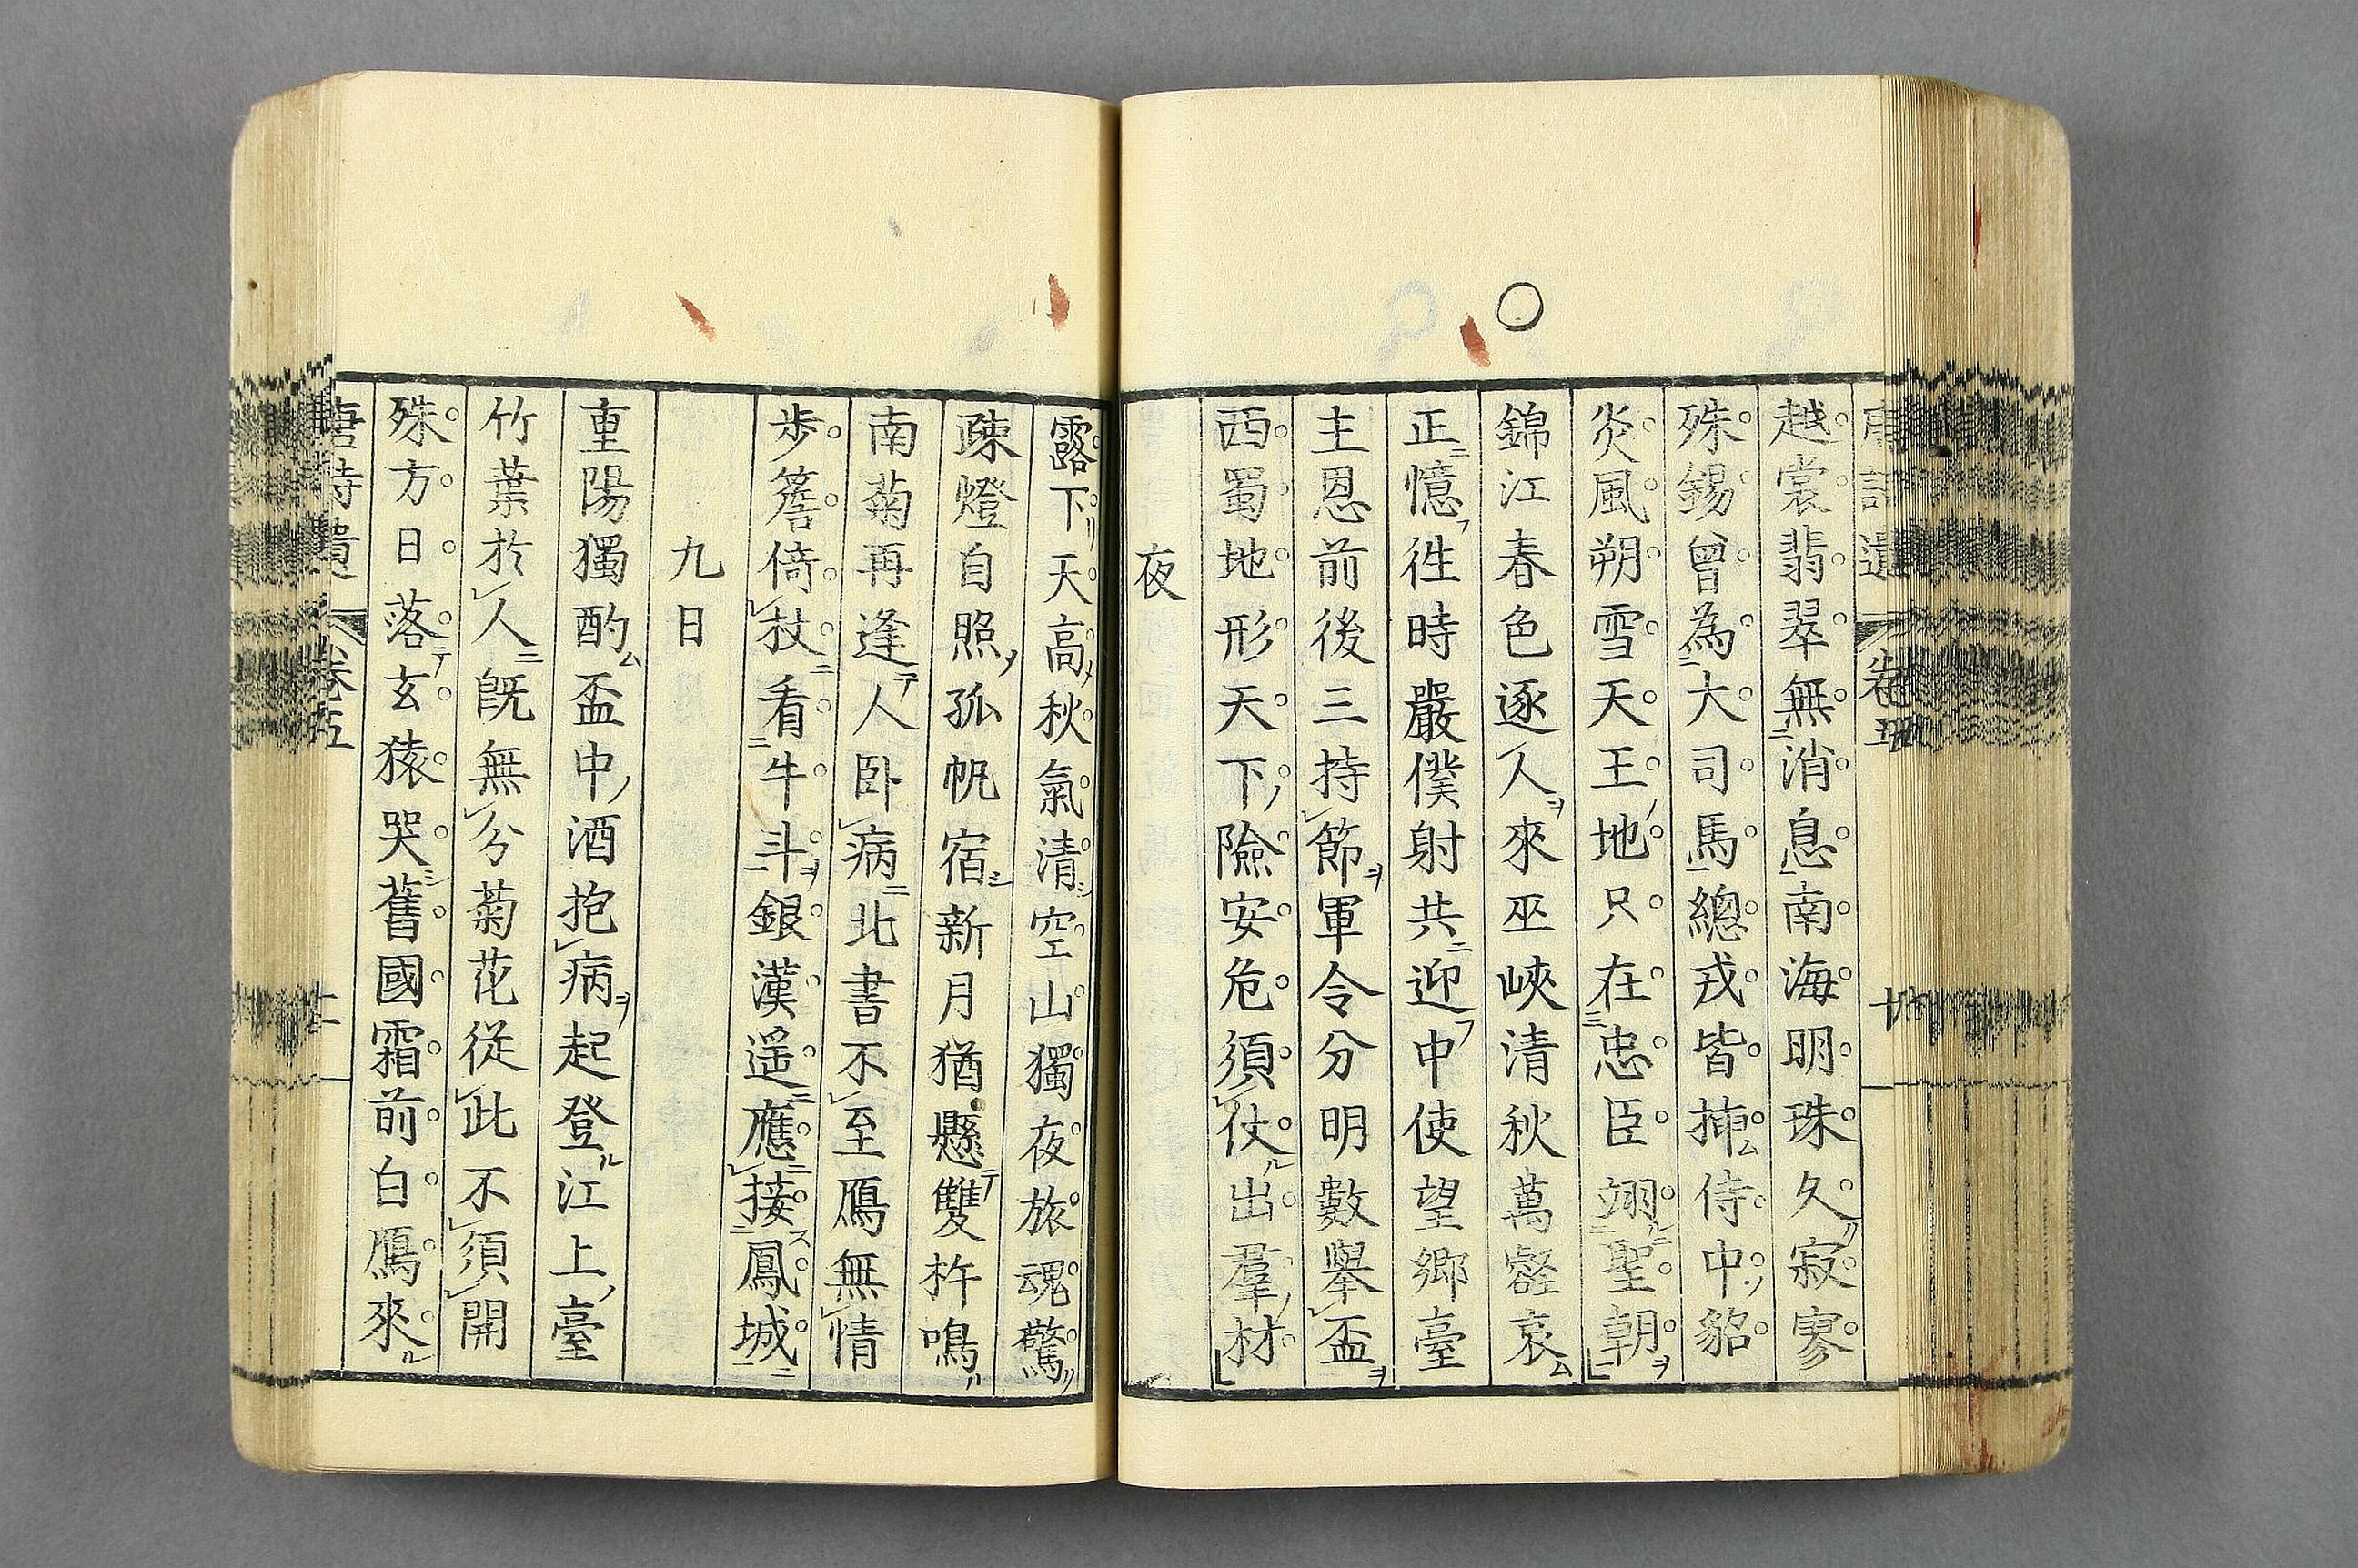 越裳翡翠無消息南海明珠久寂寥
殊錫曾為大司馬總戎皆揷侍中貂
炎風朔雪天王地只在忠臣翊聖朝
錦江春色逐人來巫峽清秋萬壑哀
正憶往時嚴僕射共迎中使望鄉臺
主恩前後三持節軍令分明數舉盃
西蜀地形天下險安危須仗出羣材
夜
露下天高秋氣清空山獨夜旅魂驚
疎燈自照孤帆宿新月猶懸雙杵鳴
南菊再逢人臥病北書不至鴈無情
步簷倚杖看牛斗銀漢遥應接鳳城
九日
重陽獨酌盃中酒抱病起登江上臺
竹葉於人旣無分菊花從此不須開
殊方日落玄猿哭舊國霜前白鴈來
卷五